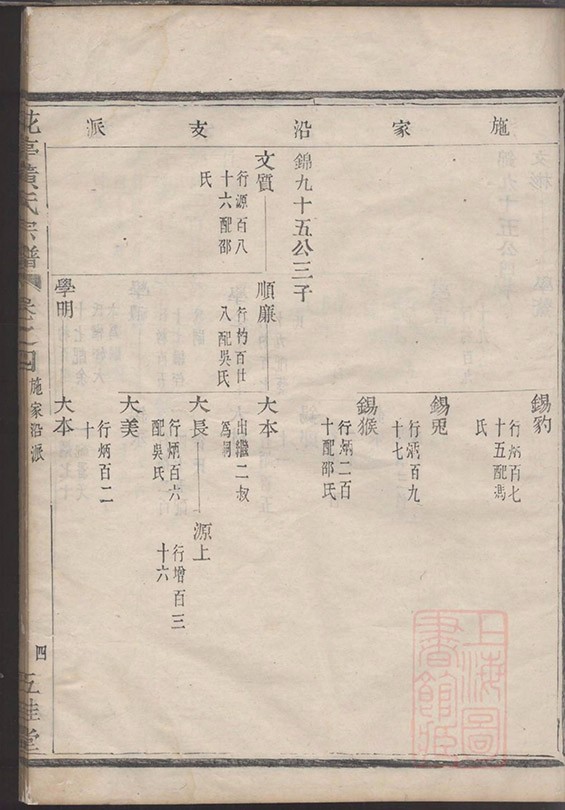 施家沿支派
錫豹
行炳百七
十五配馮
氏
錫兎
行炳百九
十七
錫猴
行炳二百
十配邵氏
錦九十五公三子
文質
行源百八
十六配邵
氏
順廉
行杓百廿
八配吳氏
大本
出繼二叔
爲嗣
大長
行炳百六
配吳氏
源上
行增百三
十六
大美
行炳百二
十
學明
大本
花亭黃氏宗譜
卷之四
施家沿派
四
五桂堂
上海圖
書館藏